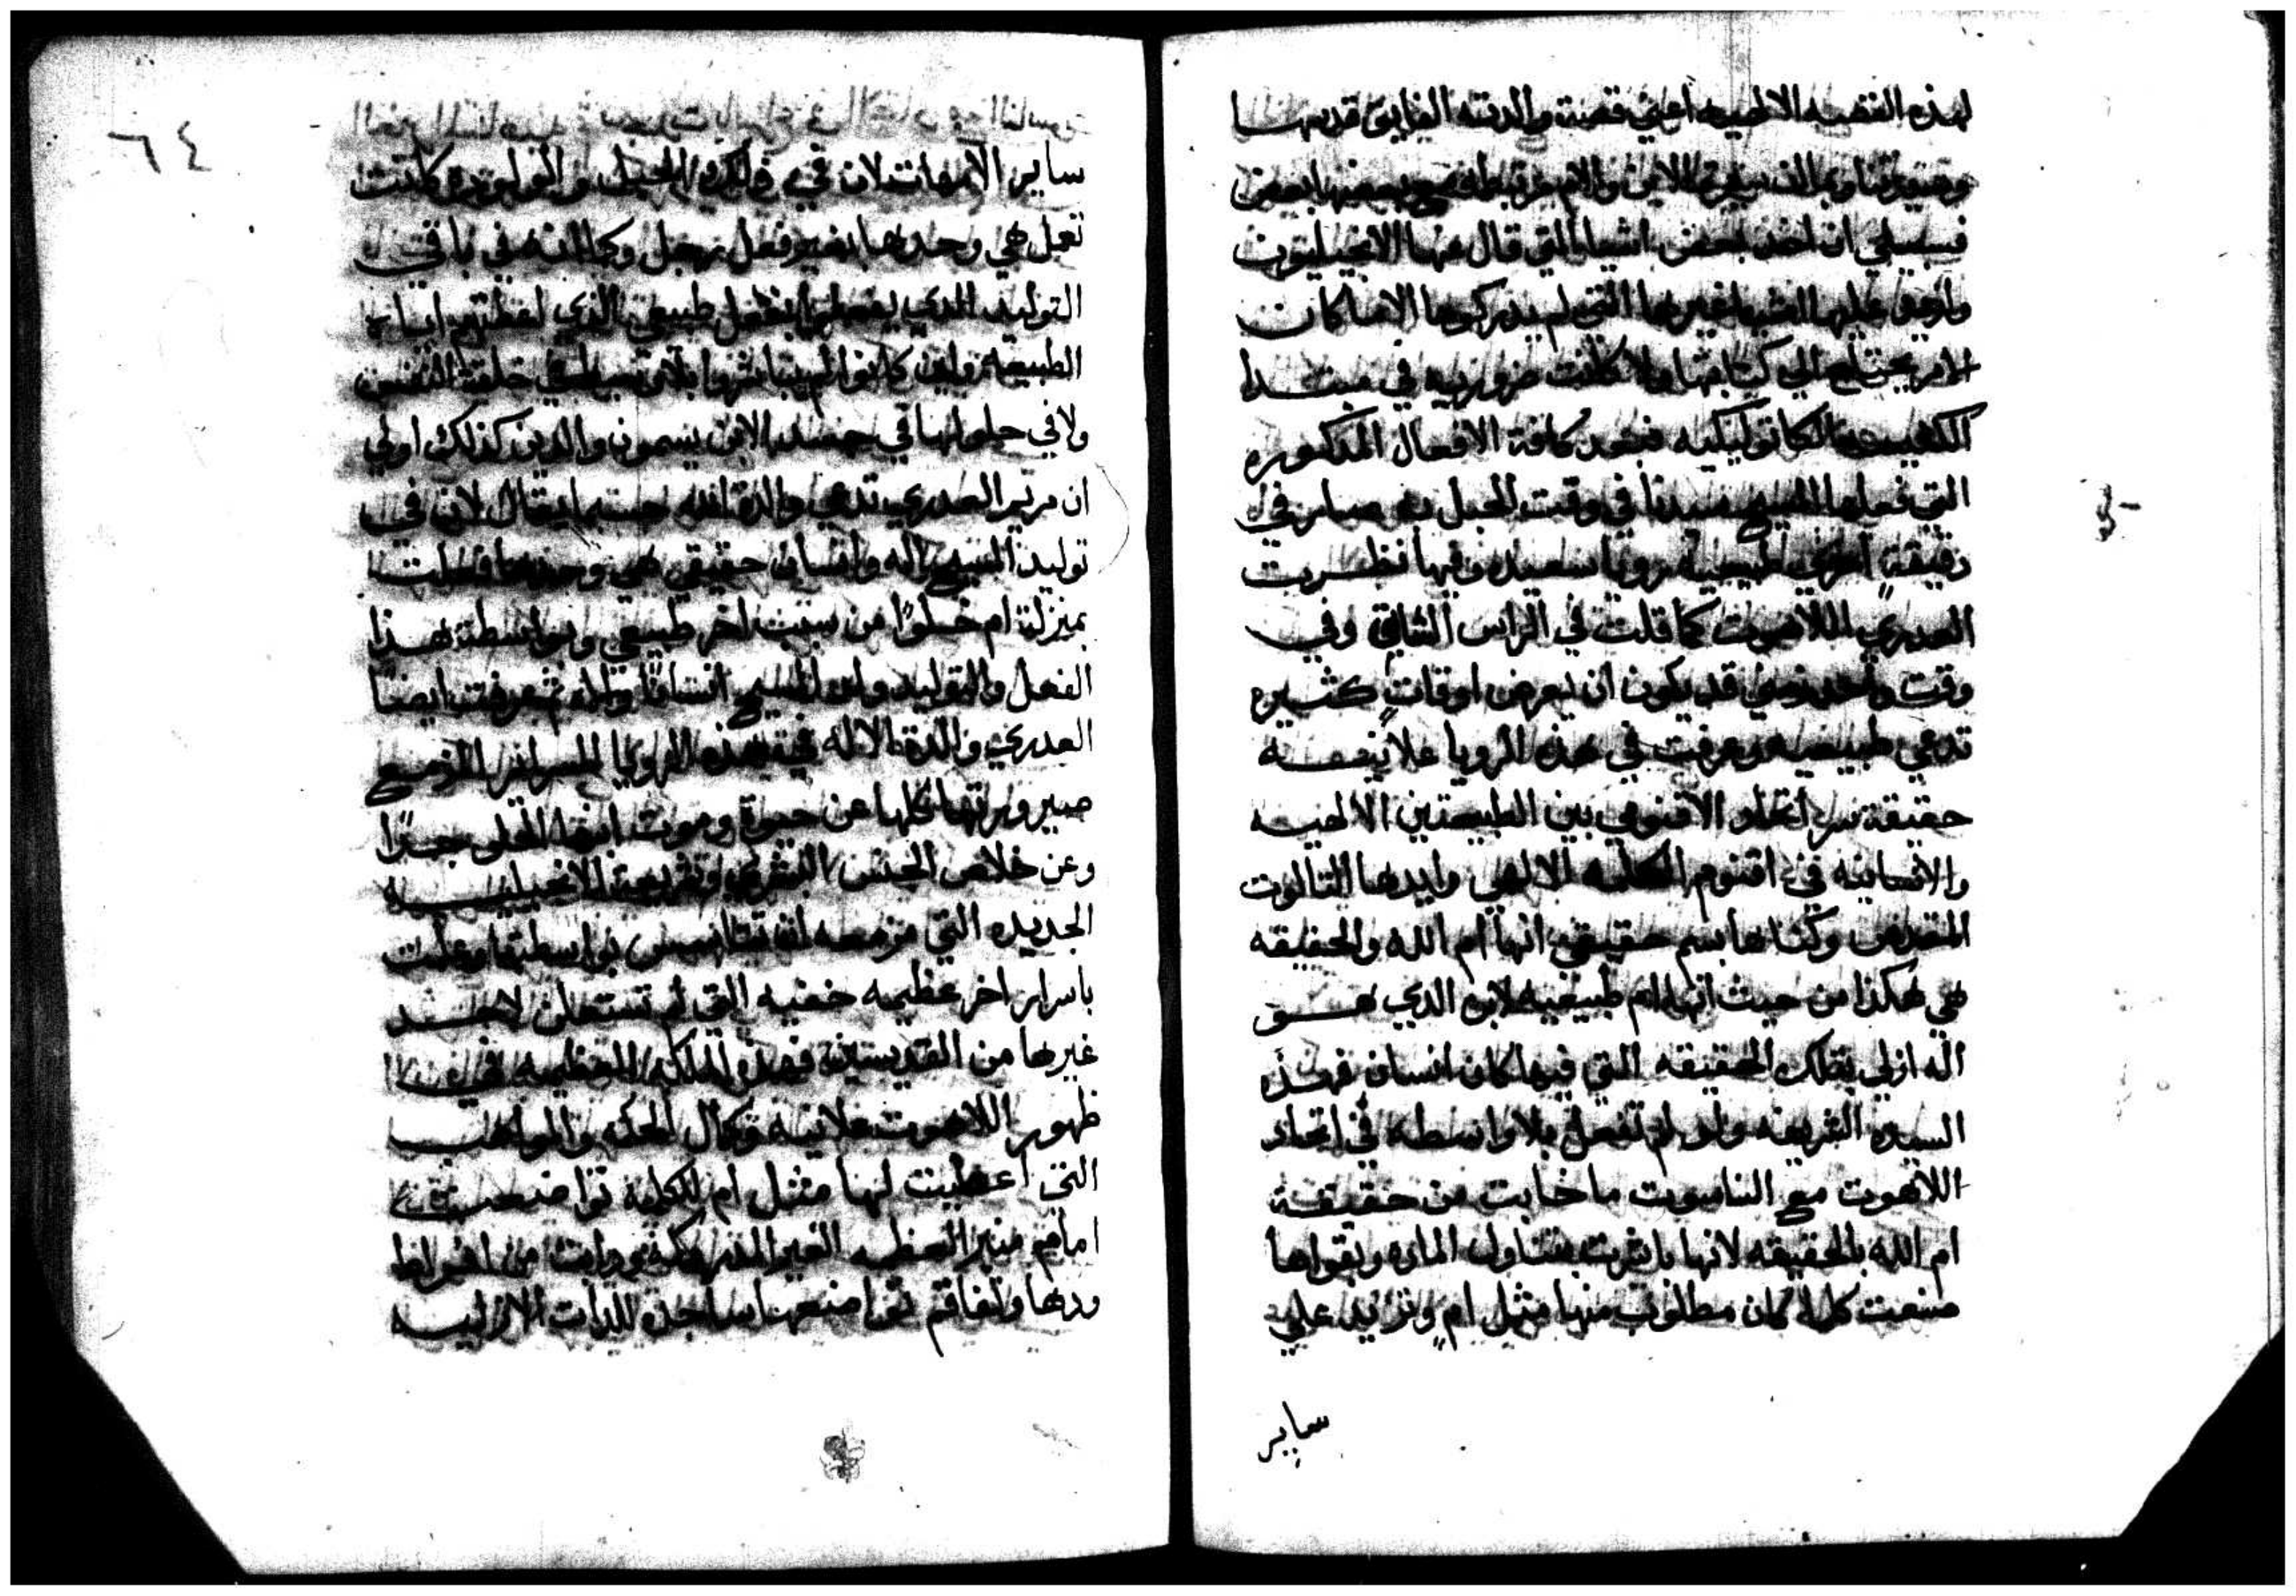 لهذه القضيه الالهيه اعني قصة والدته الفايق قدسها
وصيرورتها
فسبيلي ان اخذ بعض اشيا التي قال عنها الانجيليون
واوفق عليها اشيا غيرها التي لم يدركوها الاما كان
الامر يحتاج الي كتابتها ولا كانت ضروريه في مبتدا
الكنيسه الكاتوليكيه فبعد كافة الافعال المذكوره
التي فعلها المسيح سيدنا في وقت الحبل به صار في
دقيقة اخري طبيعية رويا سعيده وفيها نظرت
العدري اللاهوت كما قلت في الراس الثاني وفي
وقت واحد قد يكون ان يعرض اوقات كثيره
تدعي طبيعيه وعرفت في هذه الرويا علانية
حقيقة سر اتحاد الاقنومي بين الطبيعتين الالهيه
والانسانيه في اقنوم الكلمه الالهي وايدها التالوت
المقدس وكناها بسم حقيقي انها ام الله والحقيقه
هي هكذا من حيث انها ام طبيعيه لابن الدي هو
اله ازلي بتلك الحقيقه التي فيها كان انسان فهذه
السيده الشريفه ولو لم تفعل بلا واسطه في اتحاد
اللاهوت مع الناسوت ما خابت من حقيقة
ام الله بالحقيقه لانها باشرت بتناول الماده وبقواها
صنعت كلما كان مطلوب منها مثل ام وتزيد علي
ساير
٦٤
ساير الامهات لان في ذلك الحبل والتوليد كانت
تعمل هي وحدها بغير فعل رجل وكما انه في باقي
التوليد الدي يفعلوا بفعل طبيعي الذي اعطتهم اياه
الطبيعه ولين كانوا لم يباشروا بلا توسط في خلقة النفس
ولا في حلولها في جسد الابن يسمون والدين كذلك اولي
ان مريم العدري تدعي والدة الله حسبما يقال لان في
توليد المسيح اله وانسان حقيقي هي وحدها فعلت
بمنزلة ام خلوًا من سبب اخر طبيعي وبواسطة هذا
الفعل والتوليد ولد المسيح انسانًا والله ثم عرفت ايضًا
العدري والدة الاله في هذه الرويا السراير المزمع
صيرورتها كلها عن حيوة وموت ابنها الحلو جدًا
وعن خلاص الجنس البشري وشريعة الانجيليه
الجديده التي مزمعه ان تتاسس بواسطتها وعلمت
باسرار اخر عظيمه خفيه التي لم تستعلن لاحد
غيرها من القديسين فهذه الملكه العظيمه
ظهور اللاهوت علانيه وكمال الحكمه والمواهب
التي اعطيت لها مثل ام للكلمه تواضعت
امام منبر العظمه الغير المدركة ودابت من افراط
ودها وتفاقم تواضعها ساجدة للدات الازليه